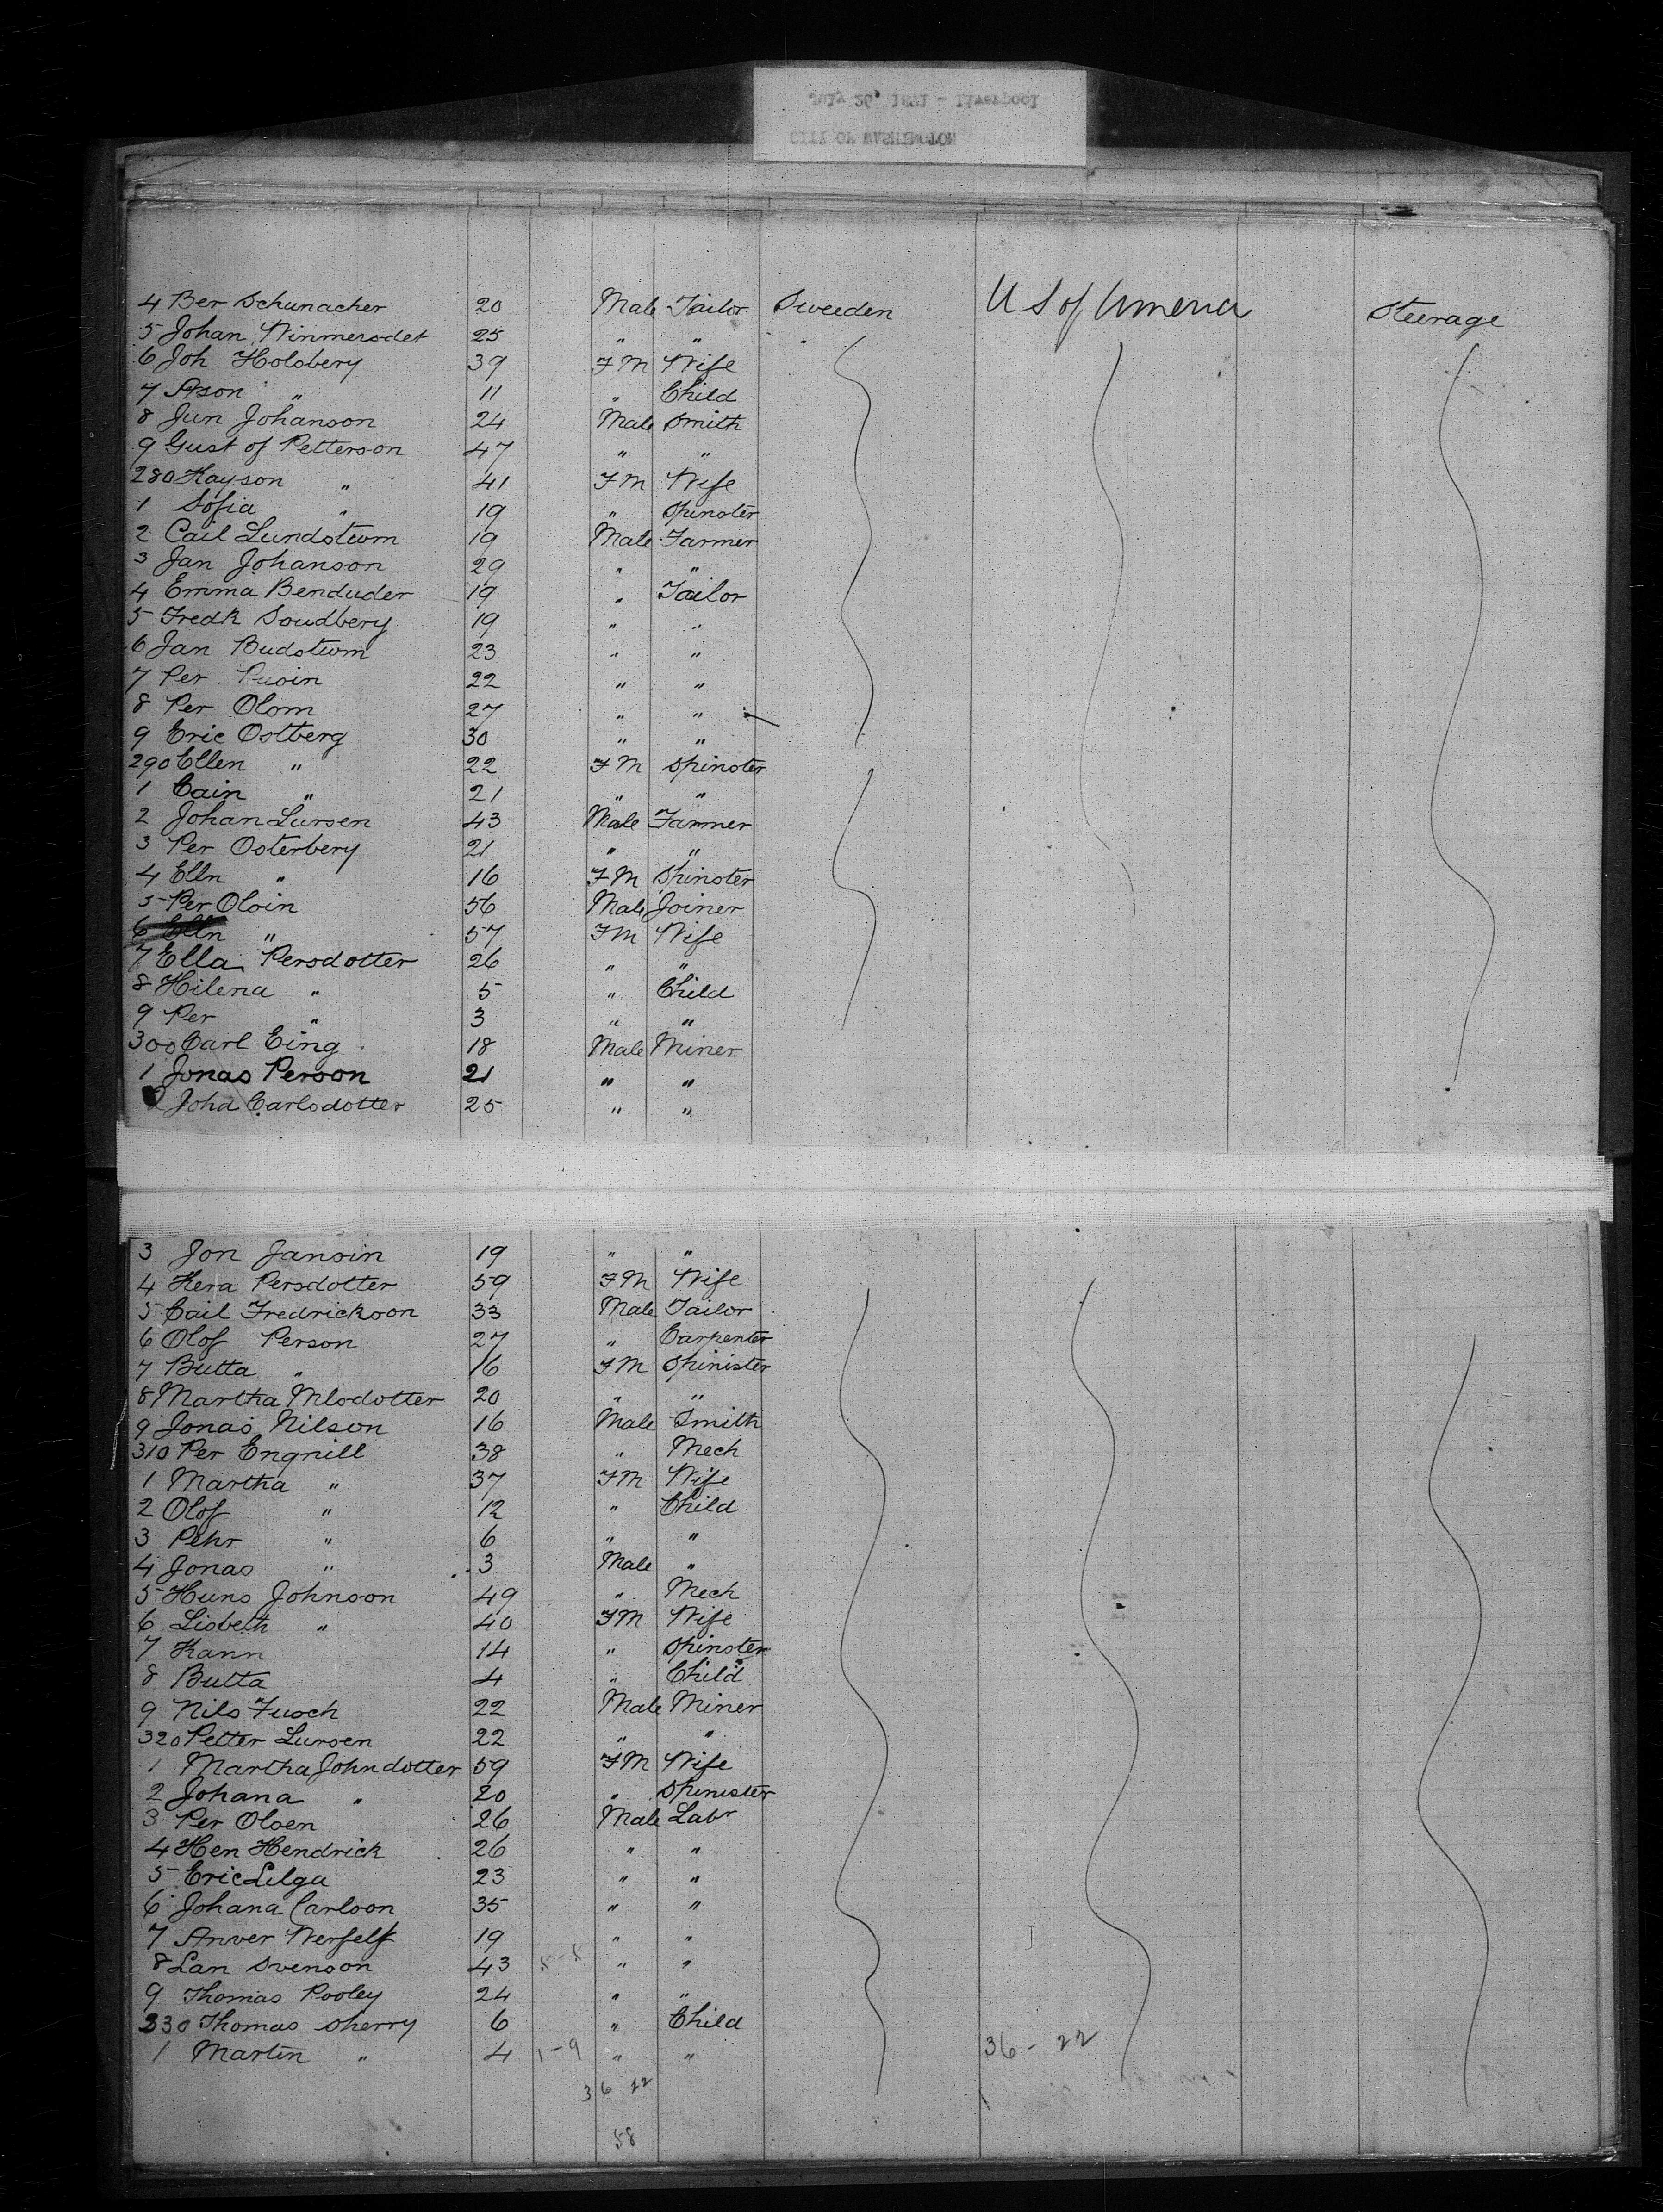 July 26, 1871 - Liverpool
CITY OF WASHINGTON
4 Ber Schunacher 20 Male Tailor Sweeden U S of America Steerage
5 Johan Winmersdet 25 " "
6 Joh Holsbery 39 FM Wife
7 Ason " 11 " Child
8 Jun Johanson 24 Male Smith
9 Gust of Petterson 47 " "
280 Kayson " 41 FM Wife
1 Sofia " 19 " Spinster
2 Cail Lundstwm 19 Male Farmer
3 Jan Johanson 29 " "
4 Emma Benduder 19 " Tailor
5 Fredk Soudbery 19 " "
6 Jan Budstwm 23 " "
7 Per 22 " "
8 Per Olom 27 " "
9 Eric Ostberg 30 " "
290 Ellen " 22 FM Spinster
1 Cain " 21 " "
2 Johan Lursen 43 Male Farmer
3 Per Osterbery 21 " "
4 Elln " 16 FM Spinster
5 Per Oloin 56 Male Joiner
6 Elln " 57 FM Wife
7 Ella Persdotter 26 " "
8 Hilena " 5 " Child
9 Per " 3 " "
300 Carl Eing 18 Male Miner
1 Jonas Person 21 " "
2 Joha Carlsdotter 25 " "
3 Jon Jansin 19 " "
4 Kera Persdotter 59 FM Wife
5 Cail Fredrickson 33 Male Tailor
6 Olof Person 27 " Carpenter
7 Butta " 16 FM Spinister
8 Martha Mlsdotter 20 " "
9 Jonas Nilson 16 Male Smith
310 Per Engnill 38 " Mech
1 Martha " 37 FM Wife
2 Olof " 12 " Child
3 Pehr " 6 " "
4 Jonas " 3 Male "
5 Huns Johnson 49 " Mech
6 Lisbeth " 40 FM Wife
7 Kann 14 " Spinster
8 Butta 4 " Child
9 Nils Fusch 22 Male Miner
320 Petter Lursen 22 " "
1 Martha Johndotter 59 FM Wife
2 Johana " 20 " Spinister
3 Per Olsen 26 Male Labr
4 Hen Hendrick 26 " "
5 Eric Lilga 23 " "
6 Johana Carlson 35 " "
7 Anver Werfelt 19 " "
8 Lan Svenson 43 " "
9 Thomas Pooley 24 " "
330 Thomas Sherry 6 " Child
1 Martin " 4 1-9 " " 36 - 22
36 22
58